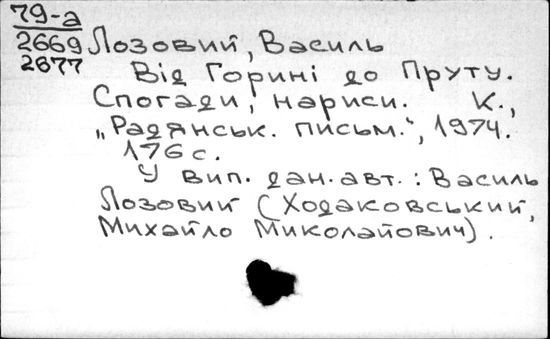 79-а
2669 Лозовий, Василь
2677
Від Горині до Пруту.
Спогади, нариси. К.,
„Радянськ. письм.", 1974.
176 с.
У вип. дан. авт.: Василь
Лозовий (Ходаковський,
Михайло Миколайович).